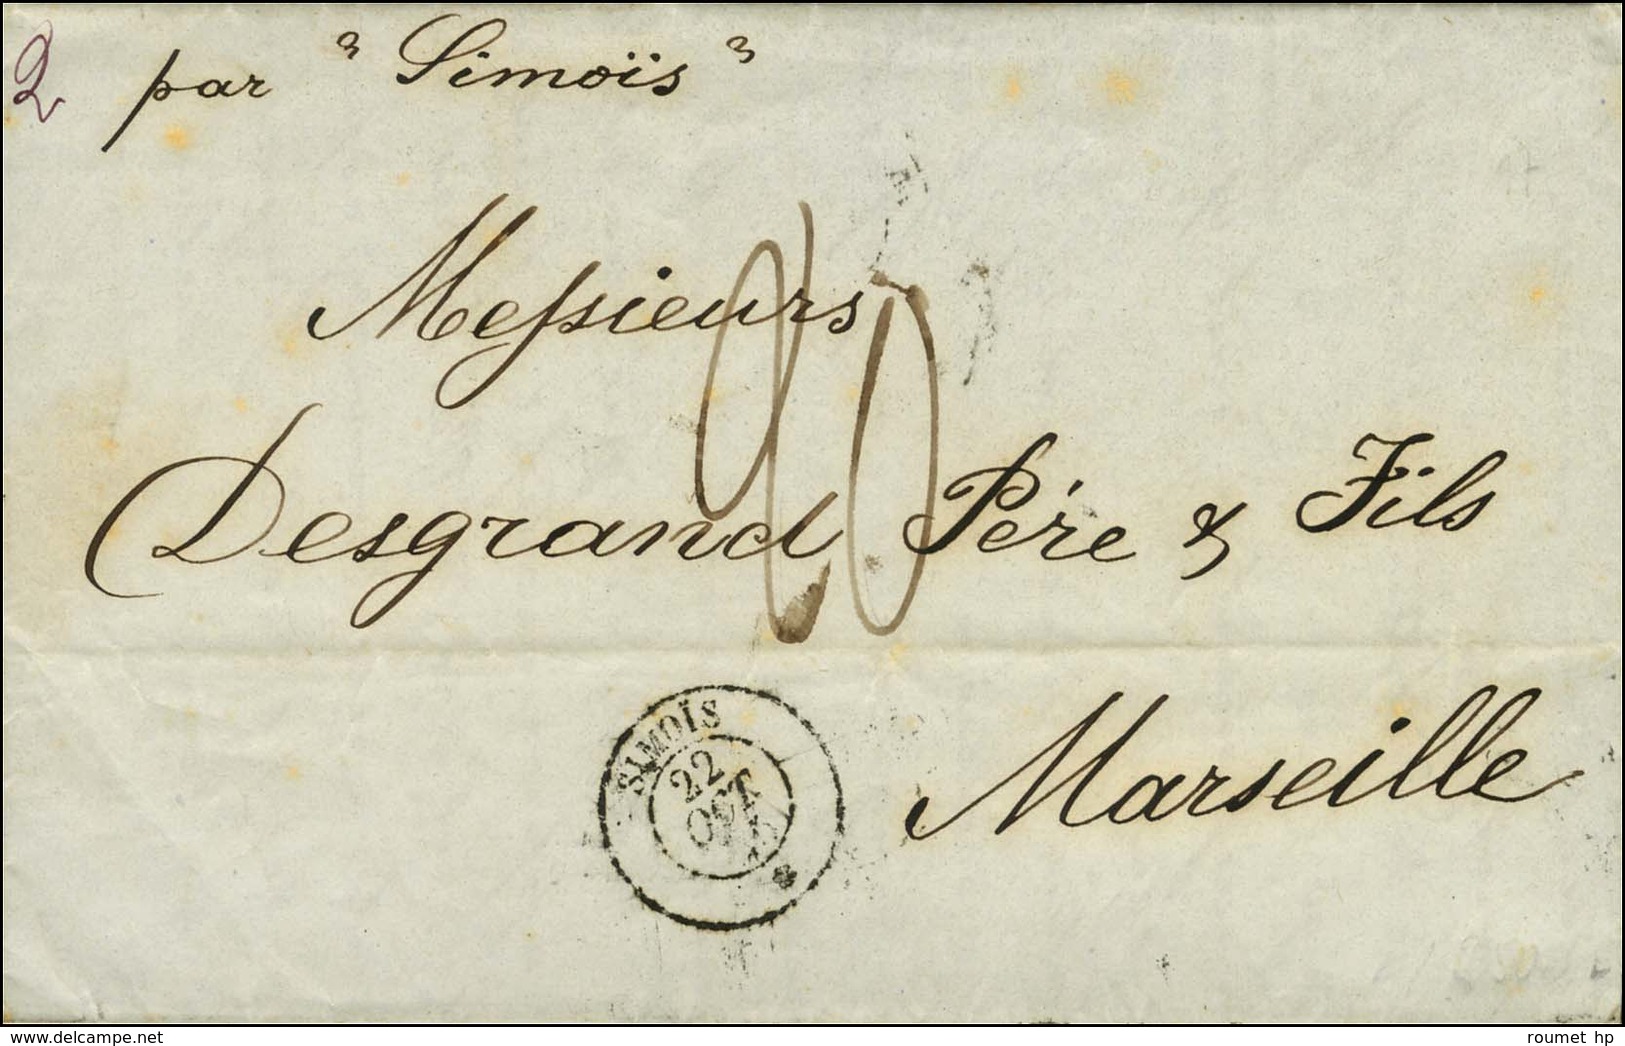 2 par "Simoïs"
Messieurs
20
Desgrand Père & Fils
Marseille
SIMOÏS
22
OCT
delcampe.net
roumet hp